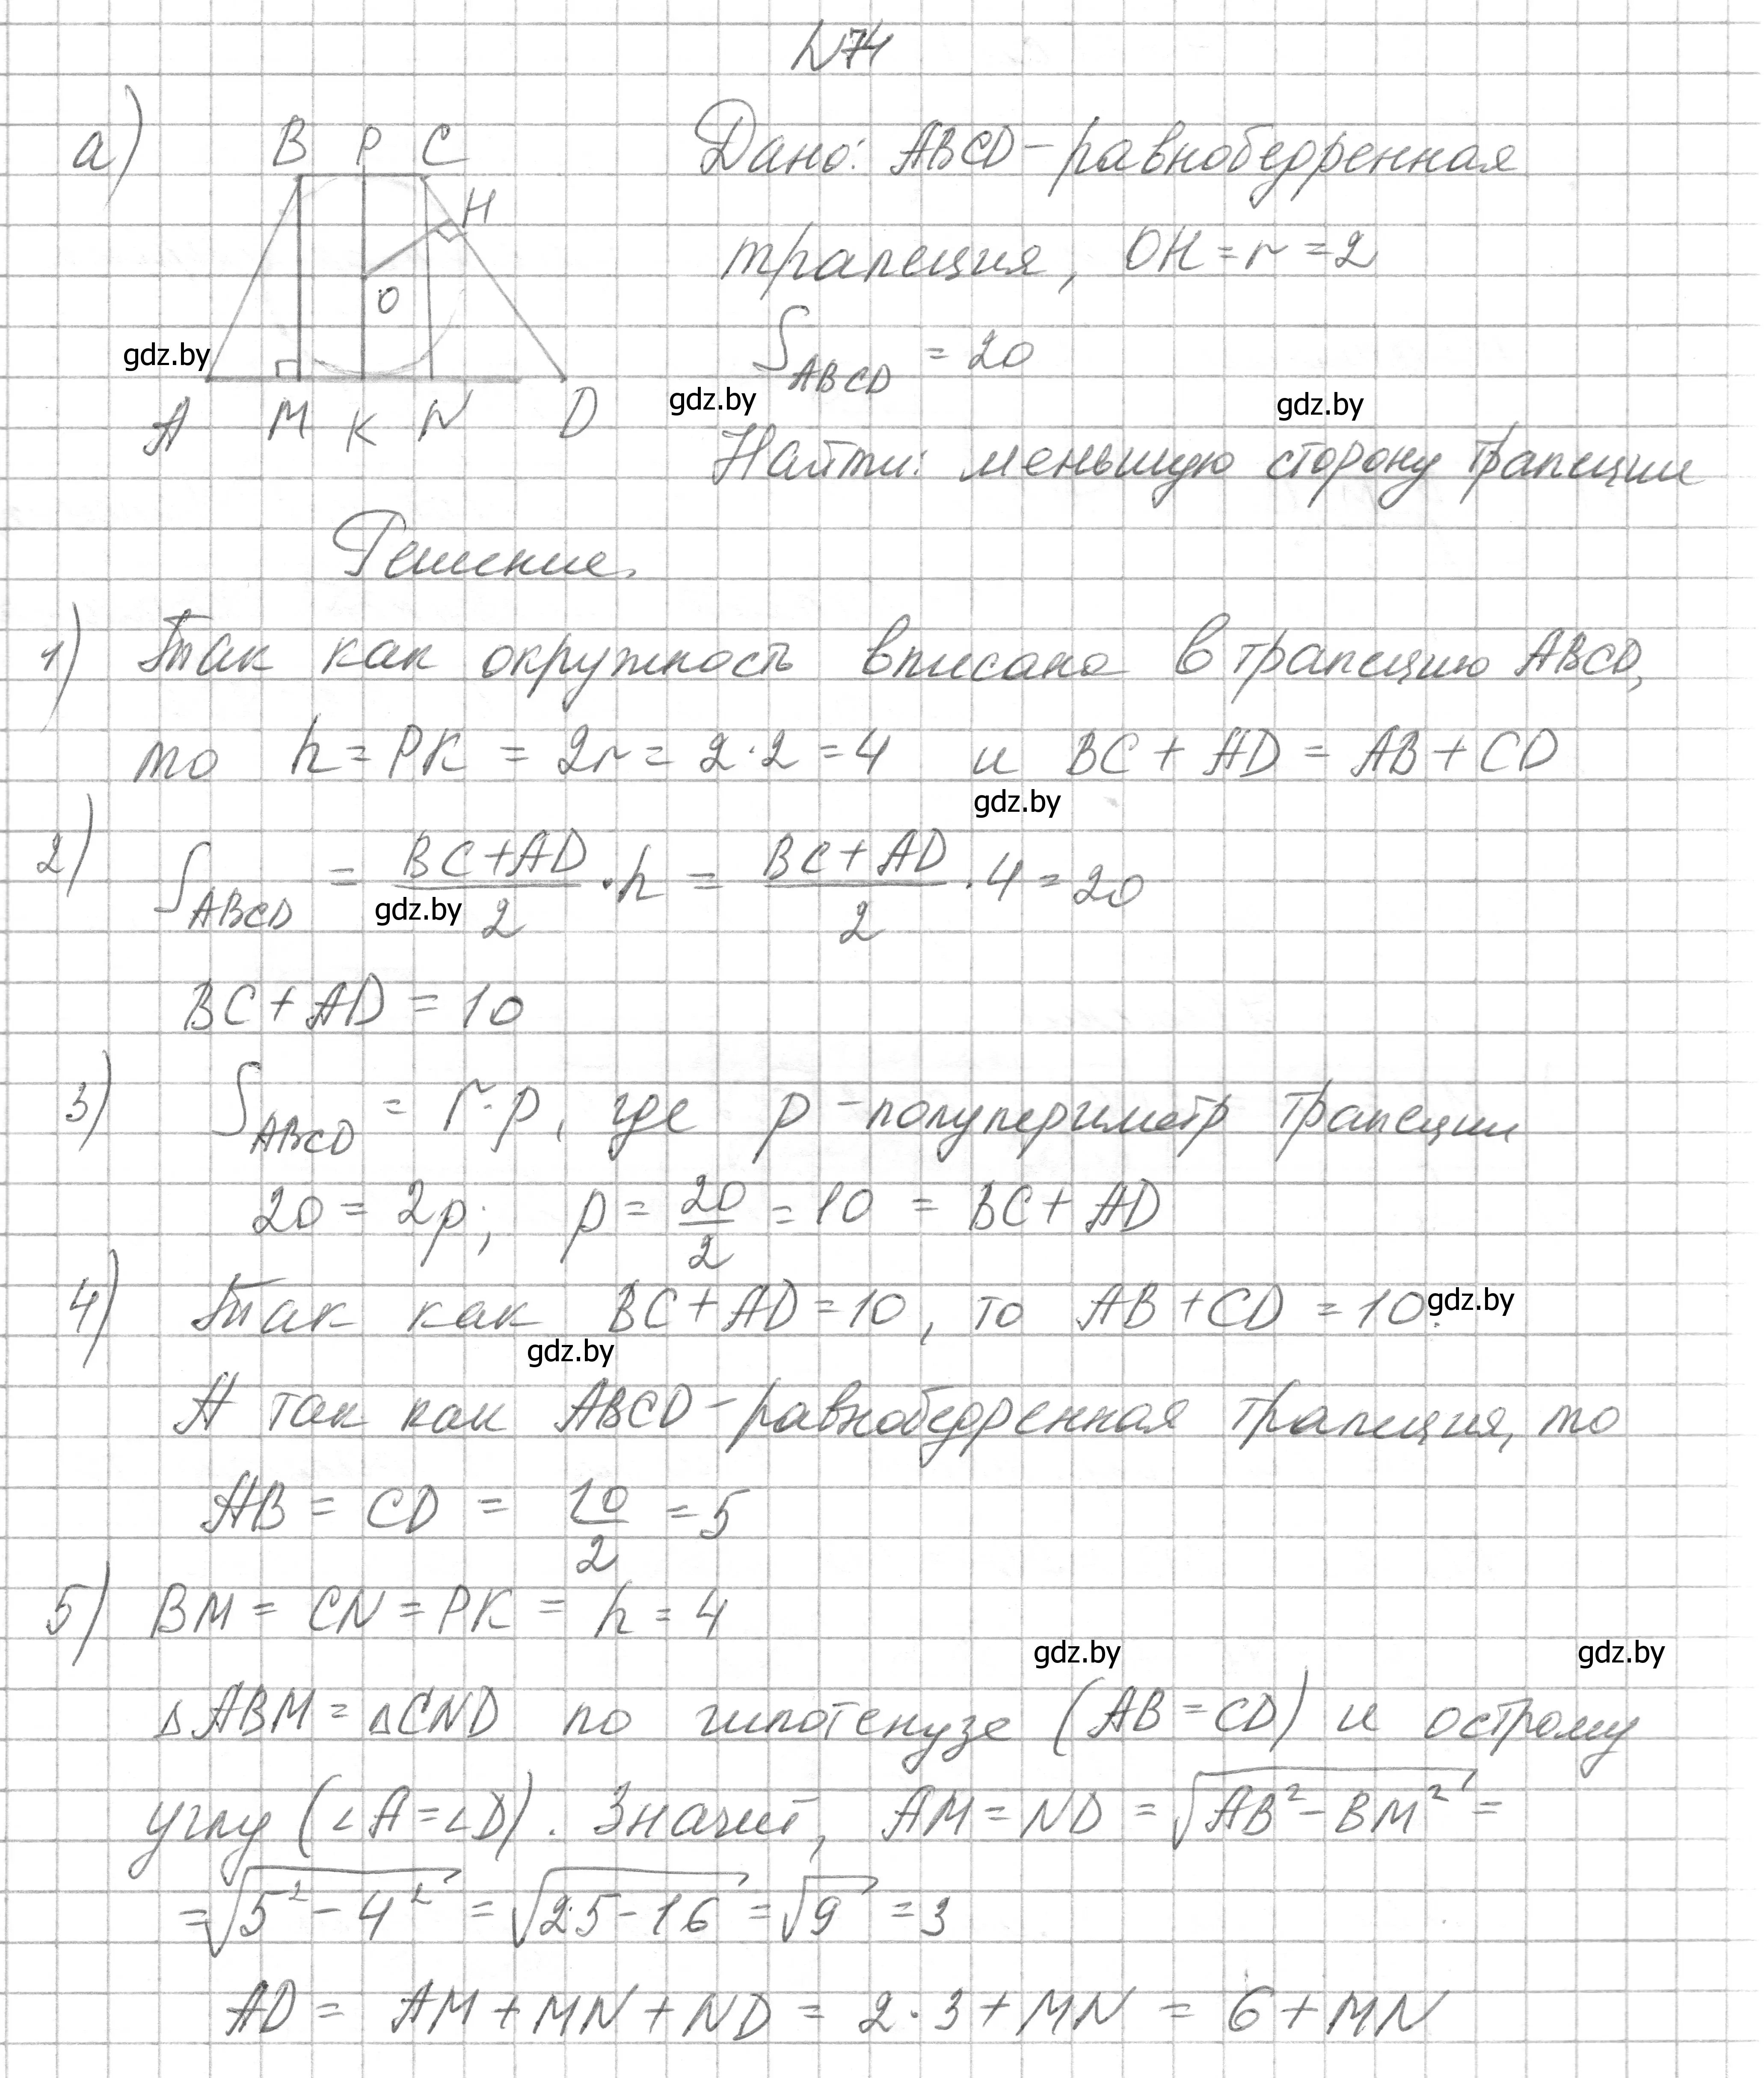 N74
а) B P C
H
O
A M K N D
Дано: ABCD - равнобедренная
трапеция, OH = r = 2
S ABCD = 20
Найти: меньшую сторону трапеции
gdz.by
gdz.by
gdz.by
Решение.
1) Так как окружность вписана в трапецию ABCD,
то h = PK = 2r = 2·2 = 4 и BC + AD = AB + CD
gdz.by
2) S ABCD = (BC+AD)/2 · h = (BC+AD)/2 · 4 = 20
gdz.by
BC + AD = 10
3) S ABCD = r·p, где p - полупериметр трапеции
20 = 2p; p = 20/2 = 10 = BC + AD
4) Так как BC + AD = 10, то AB + CD = 10.
gdz.by
gdz.by
А так как ABCD - равнобедренная трапеция, то
AB = CD = 10/2 = 5
5) BM = CN = PK = h = 4
gdz.by
gdz.by
△ABM = △CND по гипотенузе (AB = CD) и острому
углу (∠A = ∠D). Значит, AM = ND = √(AB² - BM²) =
= √(5² - 4²) = √(25 - 16) = √9 = 3
AD = AM + MN + ND = 2·3 + MN = 6 + MN